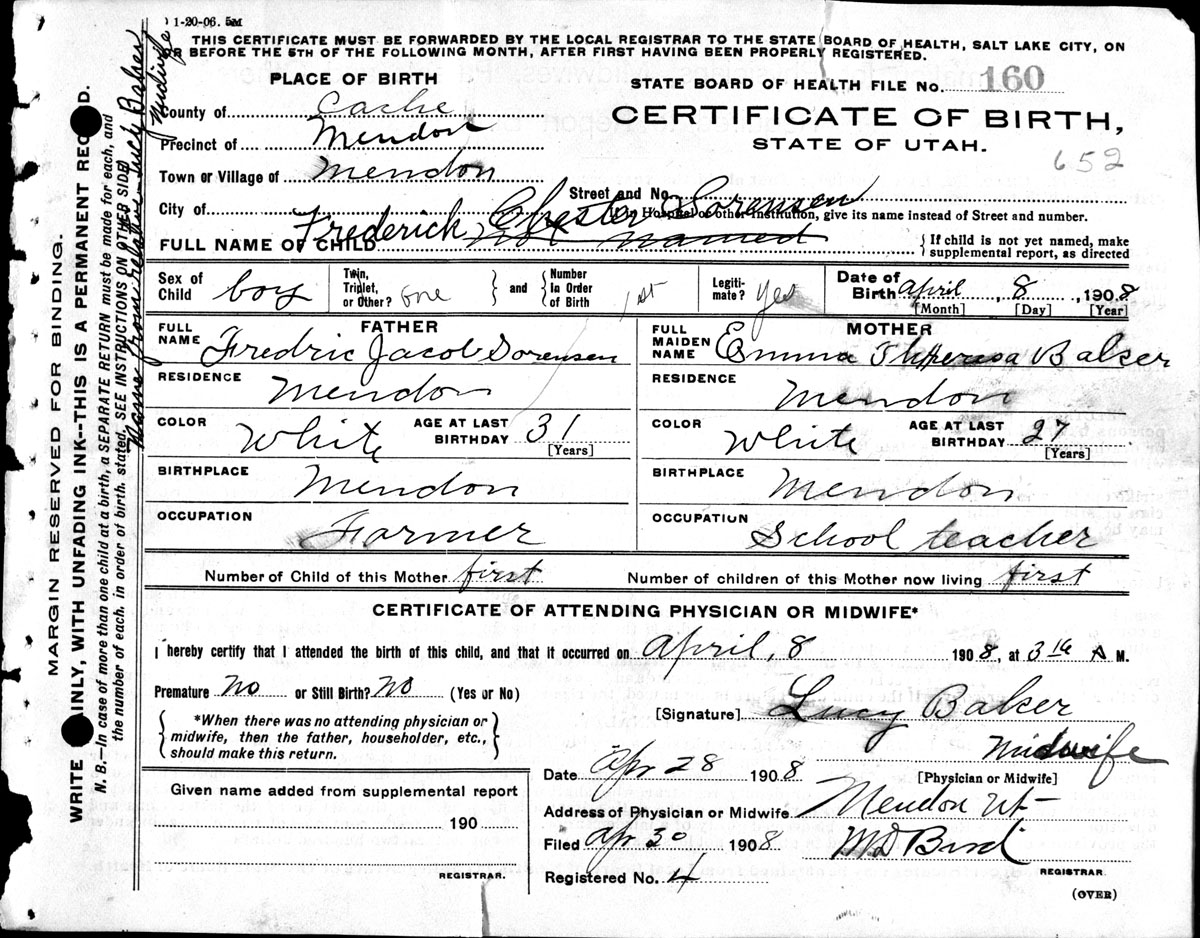 1-20-06. 5M
THIS CERTIFICATE MUST BE FORWARDED BY THE LOCAL REGISTRAR TO THE STATE BOARD OF HEALTH, SALT LAKE CITY, ON
OR BEFORE THE 5TH OF THE FOLLOWING MONTH, AFTER FIRST HAVING BEEN PROPERLY REGISTERED.
PLACE OF BIRTH
STATE BOARD OF HEALTH FILE No. 160
County of Cache
CERTIFICATE OF BIRTH,
Precinct of Mendon
STATE OF UTAH.
652
Town or Village of Mendon
Street and No.
City of
If in Hospital or other institution, give its name instead of Street and number.
Frederick Chester Sorensen
FULL NAME OF CHILD not named
{If child is not yet named, make
supplemental report, as directed
Sex of Child boy
Twin, Triplet, or Other? one } and { Number In Order of Birth 1st
Legiti-mate? Yes
Date of Birth April, 8, 1908
[Month] [Day] [Year]
FATHER
FULL NAME Fredric Jacob Sorensen
RESIDENCE Mendon
COLOR White AGE AT LAST BIRTHDAY 31
[Years]
BIRTHPLACE Mendon
OCCUPATION Farmer
MOTHER
FULL MAIDEN NAME Emma Baker
RESIDENCE Mendon
COLOR White AGE AT LAST BIRTHDAY 27
[Years]
BIRTHPLACE Mendon
OCCUPATION School teacher
Number of Child of this Mother first Number of children of this Mother now living first
CERTIFICATE OF ATTENDING PHYSICIAN OR MIDWIFE*
I hereby certify that I attended the birth of this child, and that it occurred on April, 8 1908, at 3 A M.
Premature No or Still Birth? No (Yes or No)
*When there was no attending physician or
midwife, then the father, householder, etc.,
should make this return.
[Signature] Lucy Baker
Midwife
[Physician or Midwife]
Date Apr 28 1908
Address of Physician or Midwife Mendon Ut
Filed Apr 30 1908 M D Bird
Registered No. 4
REGISTRAR.
(OVER)
Given name added from supplemental report
190
REGISTRAR.
MARGIN RESERVED FOR BINDING.
WRITE INLY, WITH UNFADING INK--THIS IS A PERMANENT REC D.
N. B.—In case of more than one child at a birth, a SEPARATE RETURN must be made for each, and
the number of each, in order of birth, stated, SEE INSTRUCTIONS ON OTHER SIDE)
Name from Lucy Baker
Midwife